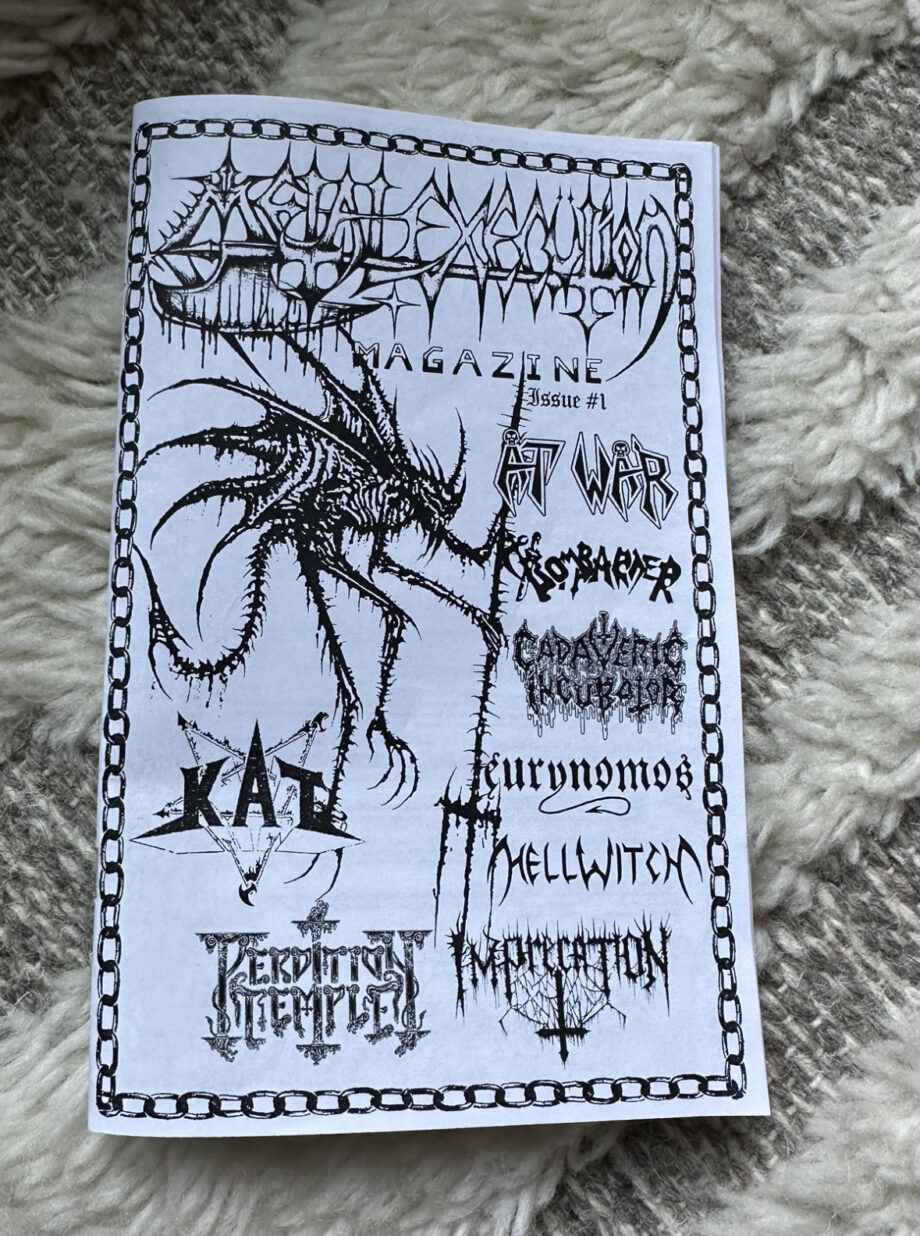 Metal Execütion
MAGAZINE
Issue #1
ÅT WÅR
BOMBARDER
CADAVERIC
INCUBATOR
KAT
Eurynomos
HELLWITCH
PERDITION
TEMPLE
IMPRECATION